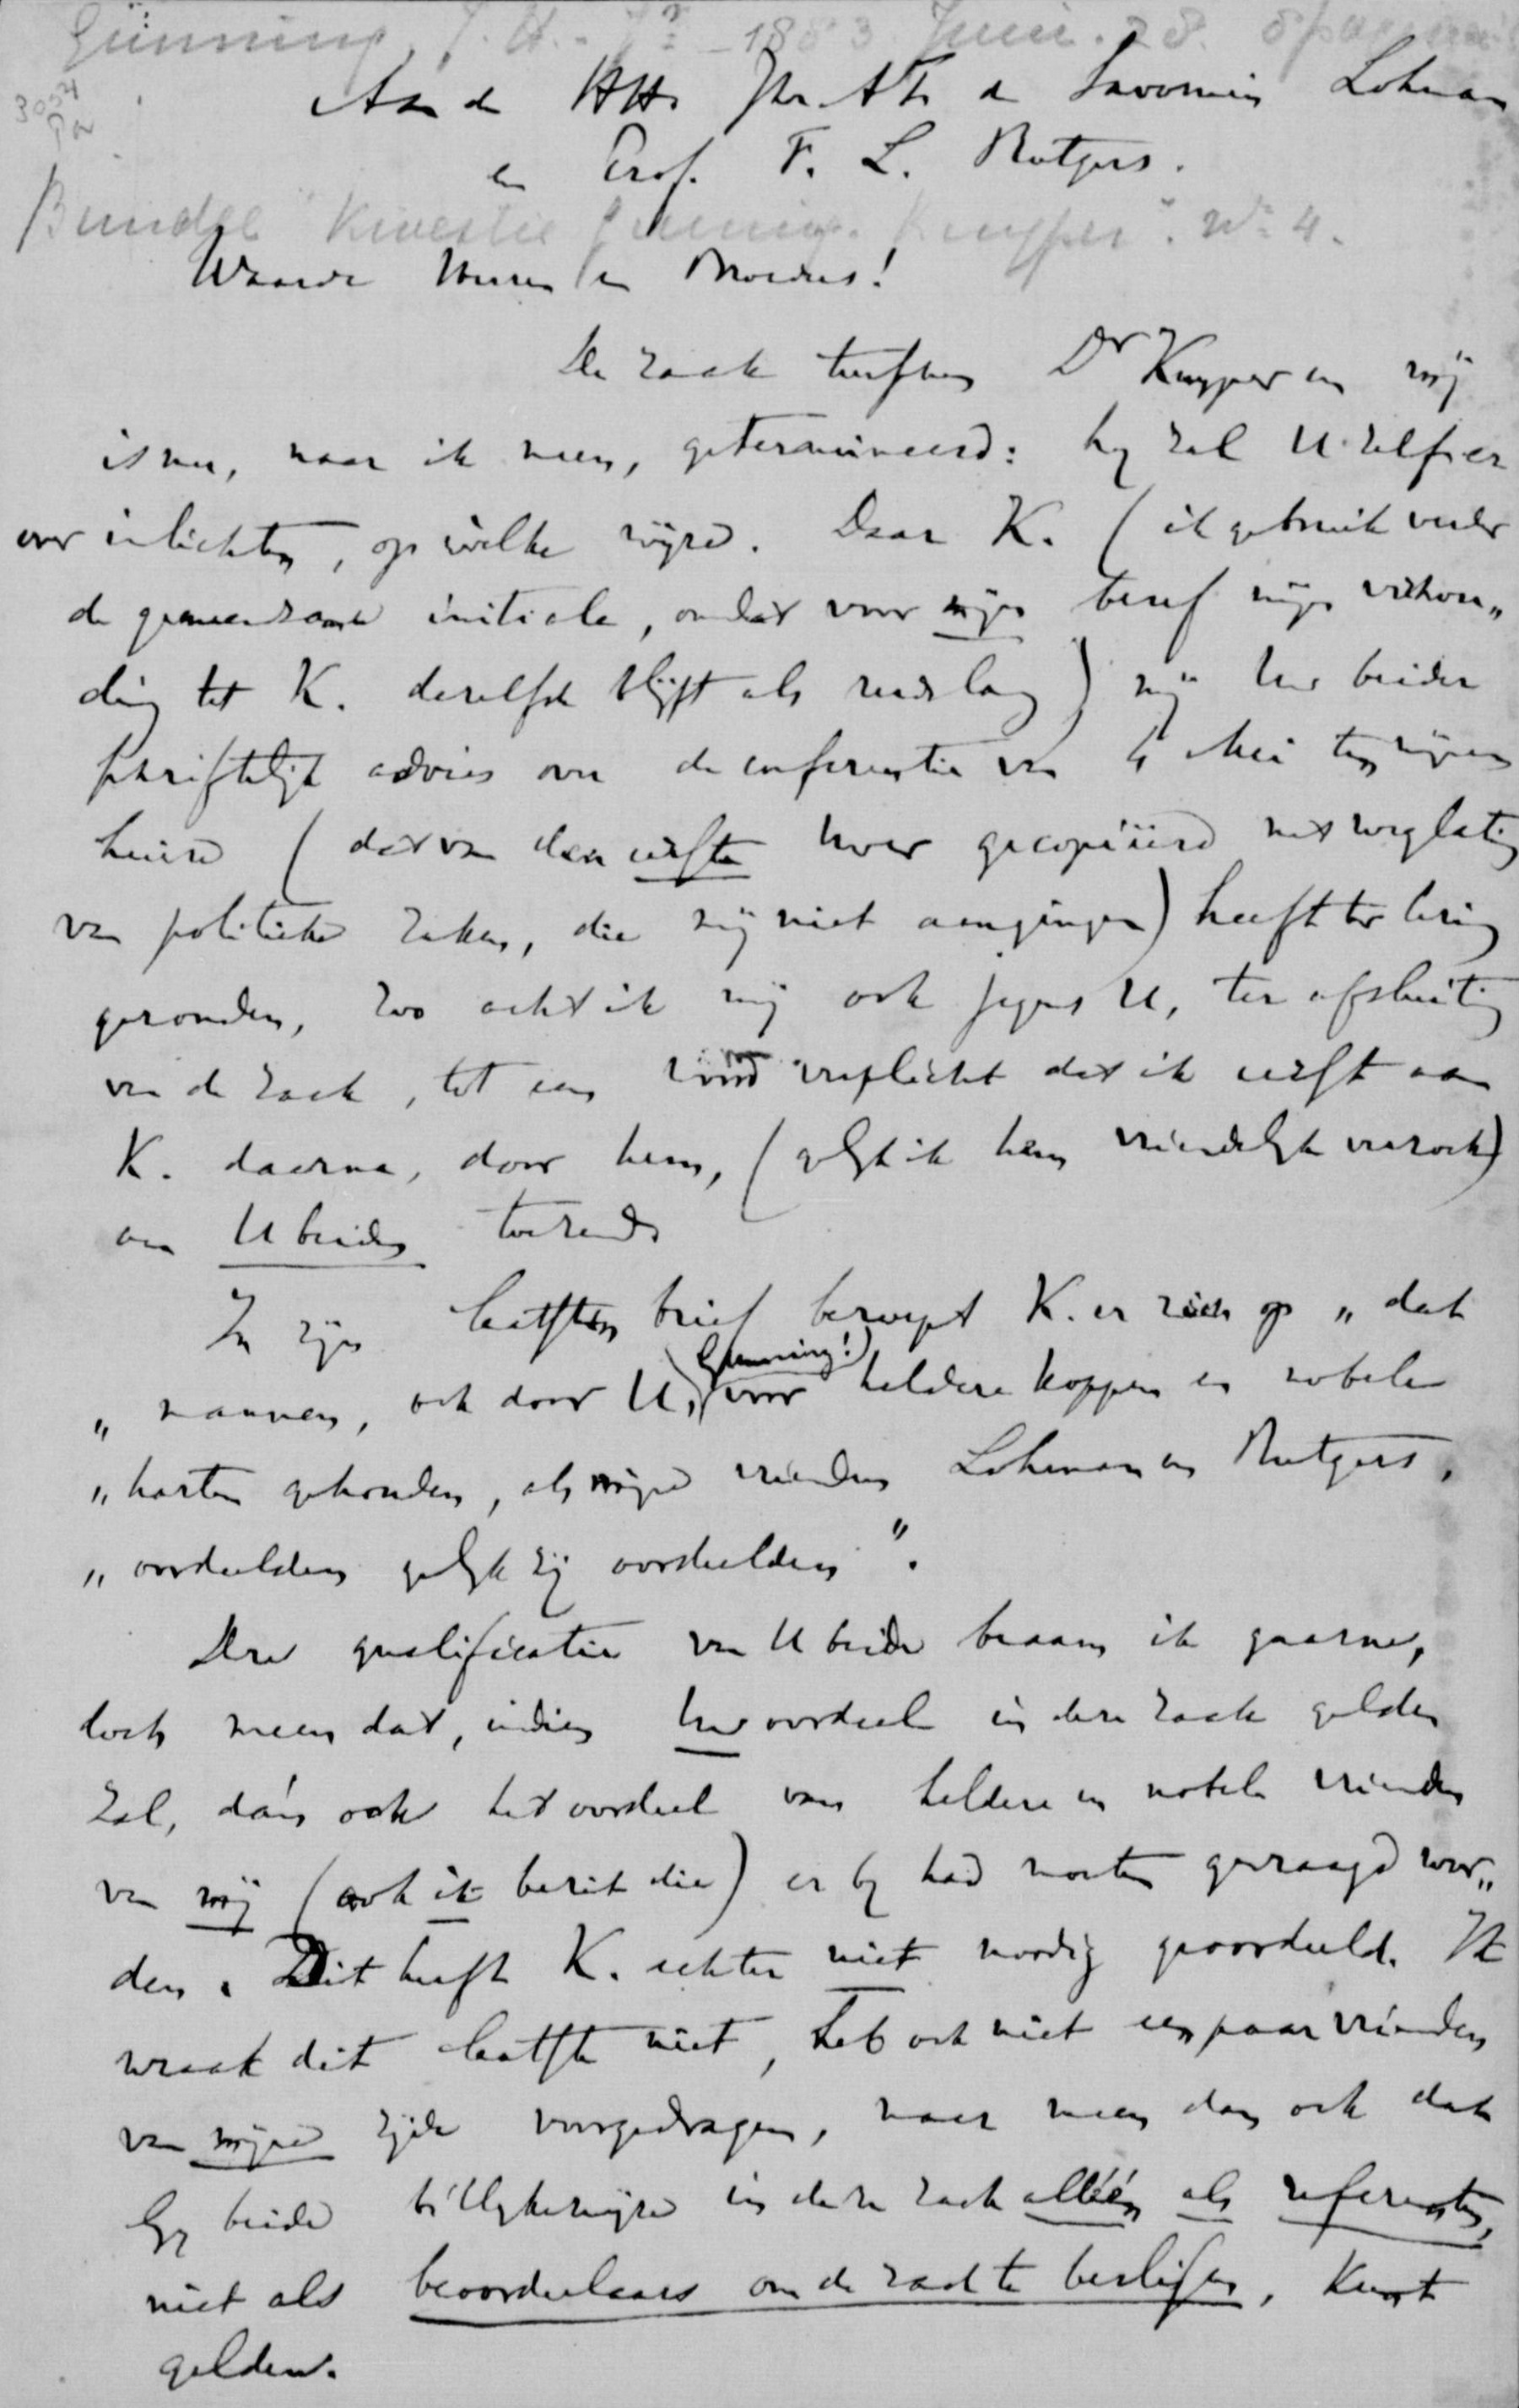 Gunning, J. H. Jr - 1883 Juni. 28.
3054
Aan de HHn Jhr A F de Savornin Lohman
en Prof. F. L. Rutgers.
Bundel "Kwestie Gunning-Kuyper". No 4.
Waarde Heeren en Broeders!
De zaak tusschen Dr Kuyper en mij
is nu, naar ik meen, getermineerd: hij zal U zelf er
over inlichten, op welke wijze. Daar K. (ik gebruik verder
de gemeenzame initiale, omdat voor mijn besef mijn verhou„
ding tot K. dezelfde blijft als sinds lang) mij Uw beider
schriftelijk advies over de conferentie van 4 Mei ten zijnen
huize (dat van den eerste voor gecopiëerd met weglating
van politieke zaken, die mij niet aangingen) heeft ter lezing
gezonden, zoo acht ik mij ook jegens U, ter afsluiting
van de zaak, tot een woord verplicht dat ik eerst aan
K. daarna, door hem, (gelijk ik hem vriendelijk verzoek)
aan U beiden toezende
In zijn laatsten brief beroept K. er zich op „dat
„mannen, ook door U, (Gunning!) voor heldere koppen en nobele
„harten gehouden, als mijne vrienden Lohman en Rutgers,
„oordeelden gelijk zij oordeelden".
Deze qualificatie van U beide beaam ik gaarne,
doch meen dat, indien Uw oordeel in deze zaak gelden
zal, dán ook het oordeel van heldere en nobele vrienden
van mij (ook ik bezit die) er bij had moeten gevraagd wor„
den. Dit heeft K. echter niet noodig geoordeeld. Ik
wraak dit laatste niet, heb ook niet een paar vrienden
van mijne zijde voorgedragen, maar meen dan ook dat
Gij beide billijkerwijze in deze zaak alléén als referenten,
niet als beoordeelaars om de zaak te beslissen, kunt
gelden.